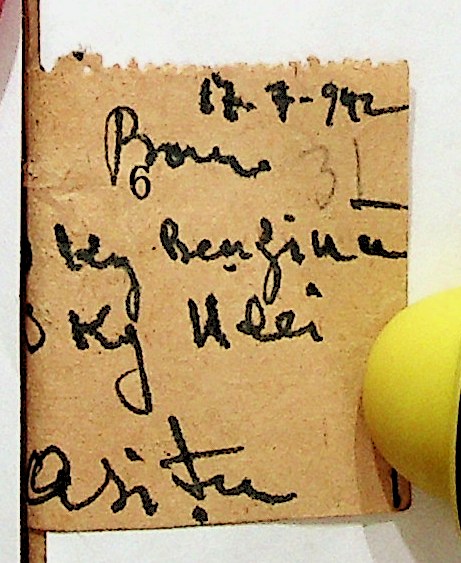 17-7-942
Bon 31
6
Kg Benzină
Kg Ulei